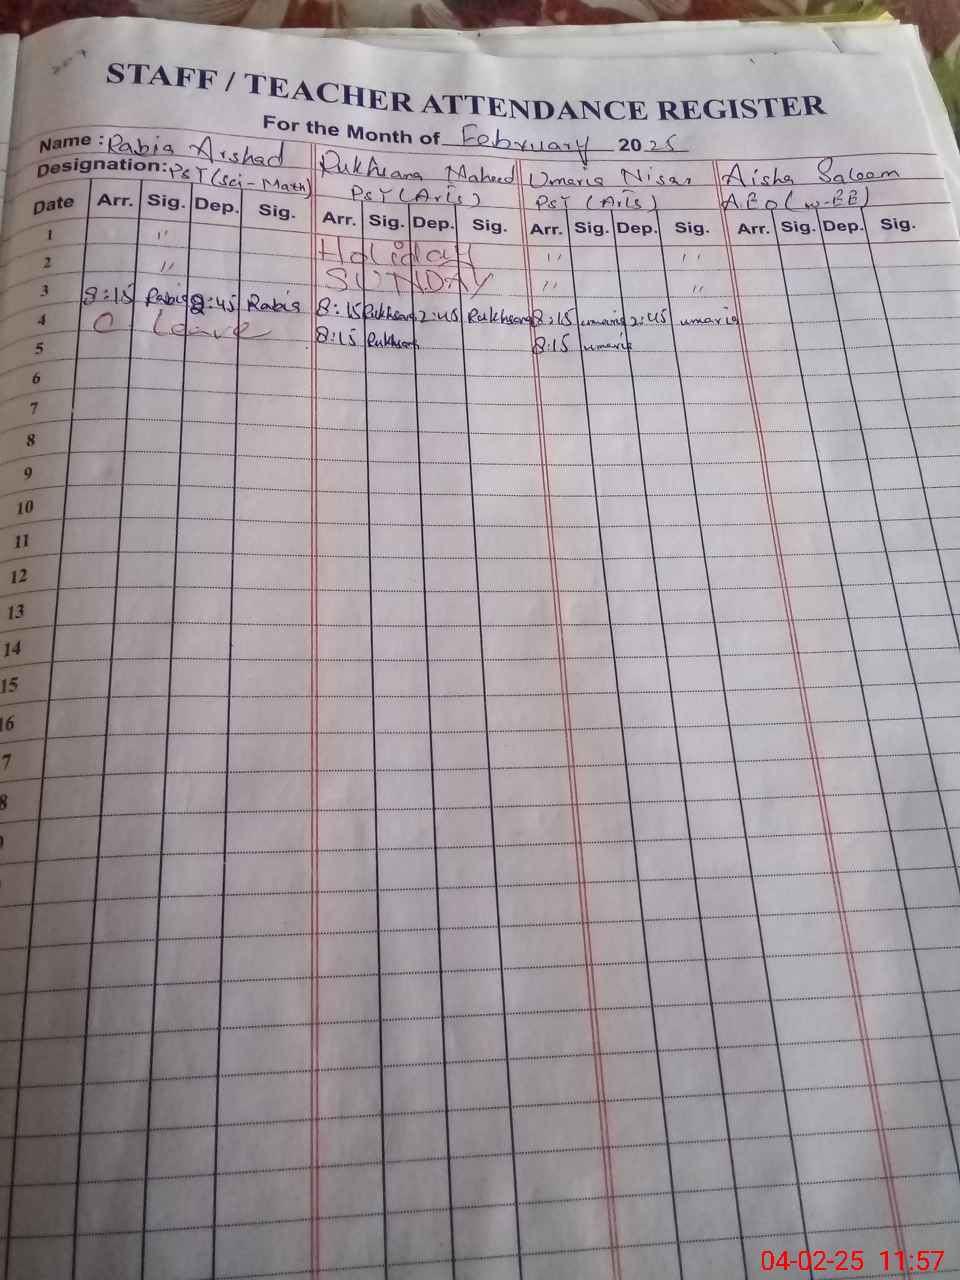 STAFF / TEACHER ATTENDANCE REGISTER
For the Month of February 2025
Name : Rabia Arshad Rukhsana Majeed Umaria Nisar Aisha Saleem
Designation: PST (Sci - Math) PST (Arts) PST (Arts) A.E.O (W-EE)
Date Arr. Sig. Dep. Sig. Arr. Sig. Dep. Sig. Arr. Sig. Dep. Sig. Arr. Sig. Dep. Sig.
1 " Holiday " "
2 " SUNDAY " "
3 8:15 Rabia 2:45 Rabia 8:15 Rukhsana 2:45 Rukhsana 8:15 umaria 2:45 umaria
4 C leave 8:15 Rukhsana 8:15 umaria
5
6
7
8
9
10
11
12
13
14
15
16
7
8
04-02-25 11:57